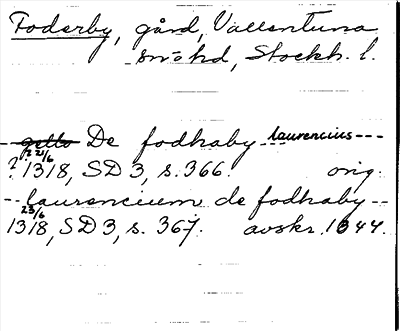 Foderby, gård, Vallentuna
sn o hd, Stockh. l.
-- gello De fodhaby laurencius ---
? 21/6 1318, SD 3, s. 366. orig.
-- laurencium de fodhaby --
23/6 1318, SD 3, s. 367. avskr. 1344.